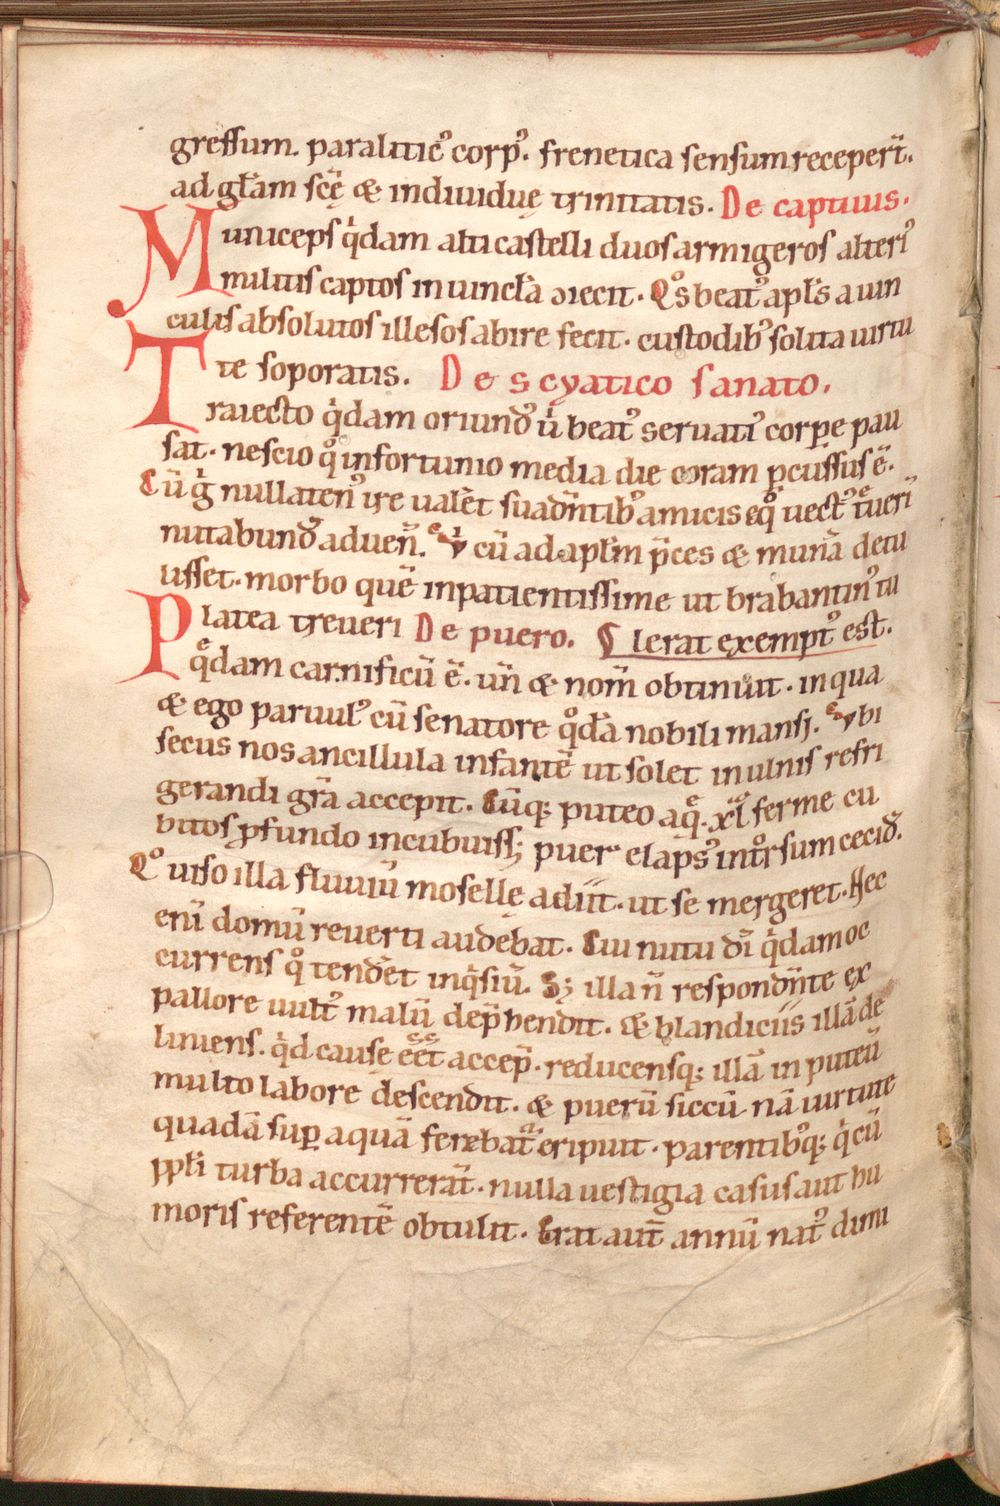 gressum. paralitic᷒ corp᷒. frenetica sensum receper̄t.
ad gl̄am sc̄ę & indiuiduę trinitatis. De captiuis.
Municeps qͥdam alti castelli duos armigeros alteri᷒
militis captos in uincl̄a ↄiecit. Qͦs beat᷒ apl̄s a uin
culis absolutos illesos abire fecit. custodib᷒ solita uirtu
te soporatis. De scyatico sanato.
Traiecto qͥdam oriund᷒ uͥ beat᷒ seruati᷒ corpꝑe pau
sat. nescio qͦ infortunio media die coram ꝑcussus ē.
Cū gͥ nullaten᷒ ire ualēt suadn̄tib᷒ amicis eqͦ uect᷒ tͤuerī
nutabund᷒ aduen̄. ͤvͥ cū ad apl̄m p̄ces & munā detu
lisset. morbo quē inpatientissime ut brabantin᷒ tu
Platea treueri De puero. ¶ lerat exempt᷒ est.
qͤdam carnificū ē. un̄ & nom̄ obtinuit. in qua
& ego paruul᷒ cū senatore qͦdā nobili mansi. ͤvbi
secus nos ancillula infantē ut solet in ulnis refri
gerandi gr̄a accepit. Cūq; puteo aqͤ. xl͞ ferme cu
bitos ꝓfundo incubuiss; puer elaps᷒ intͦrsum cecid᷒.
Qͦ uiso illa fluuiū moselle adiit. ut se mergeret. Nec
enī domū reuerti audebat. Cui nutu dī qͥdam oc
currens qͦ tendēt inqͥsiū. S; illa n̄ respondn̄te ex
pallore uult᷒ malū dep̄hendit. & blandiciis illā de
liniens. qͥd cause eēt accep̄. reducensq; illā in puteū
multo labore descendit. & puerū siccū nā uirtute
quadā suꝑ aquā ferebat᷒ eripuit. parentib᷒q; qͥ cū
ppl̄i turba accurrerāt. nulla uestigia casus aut hu
moris referentē obtulit. Erat aut̄ annū nat᷒ dimi